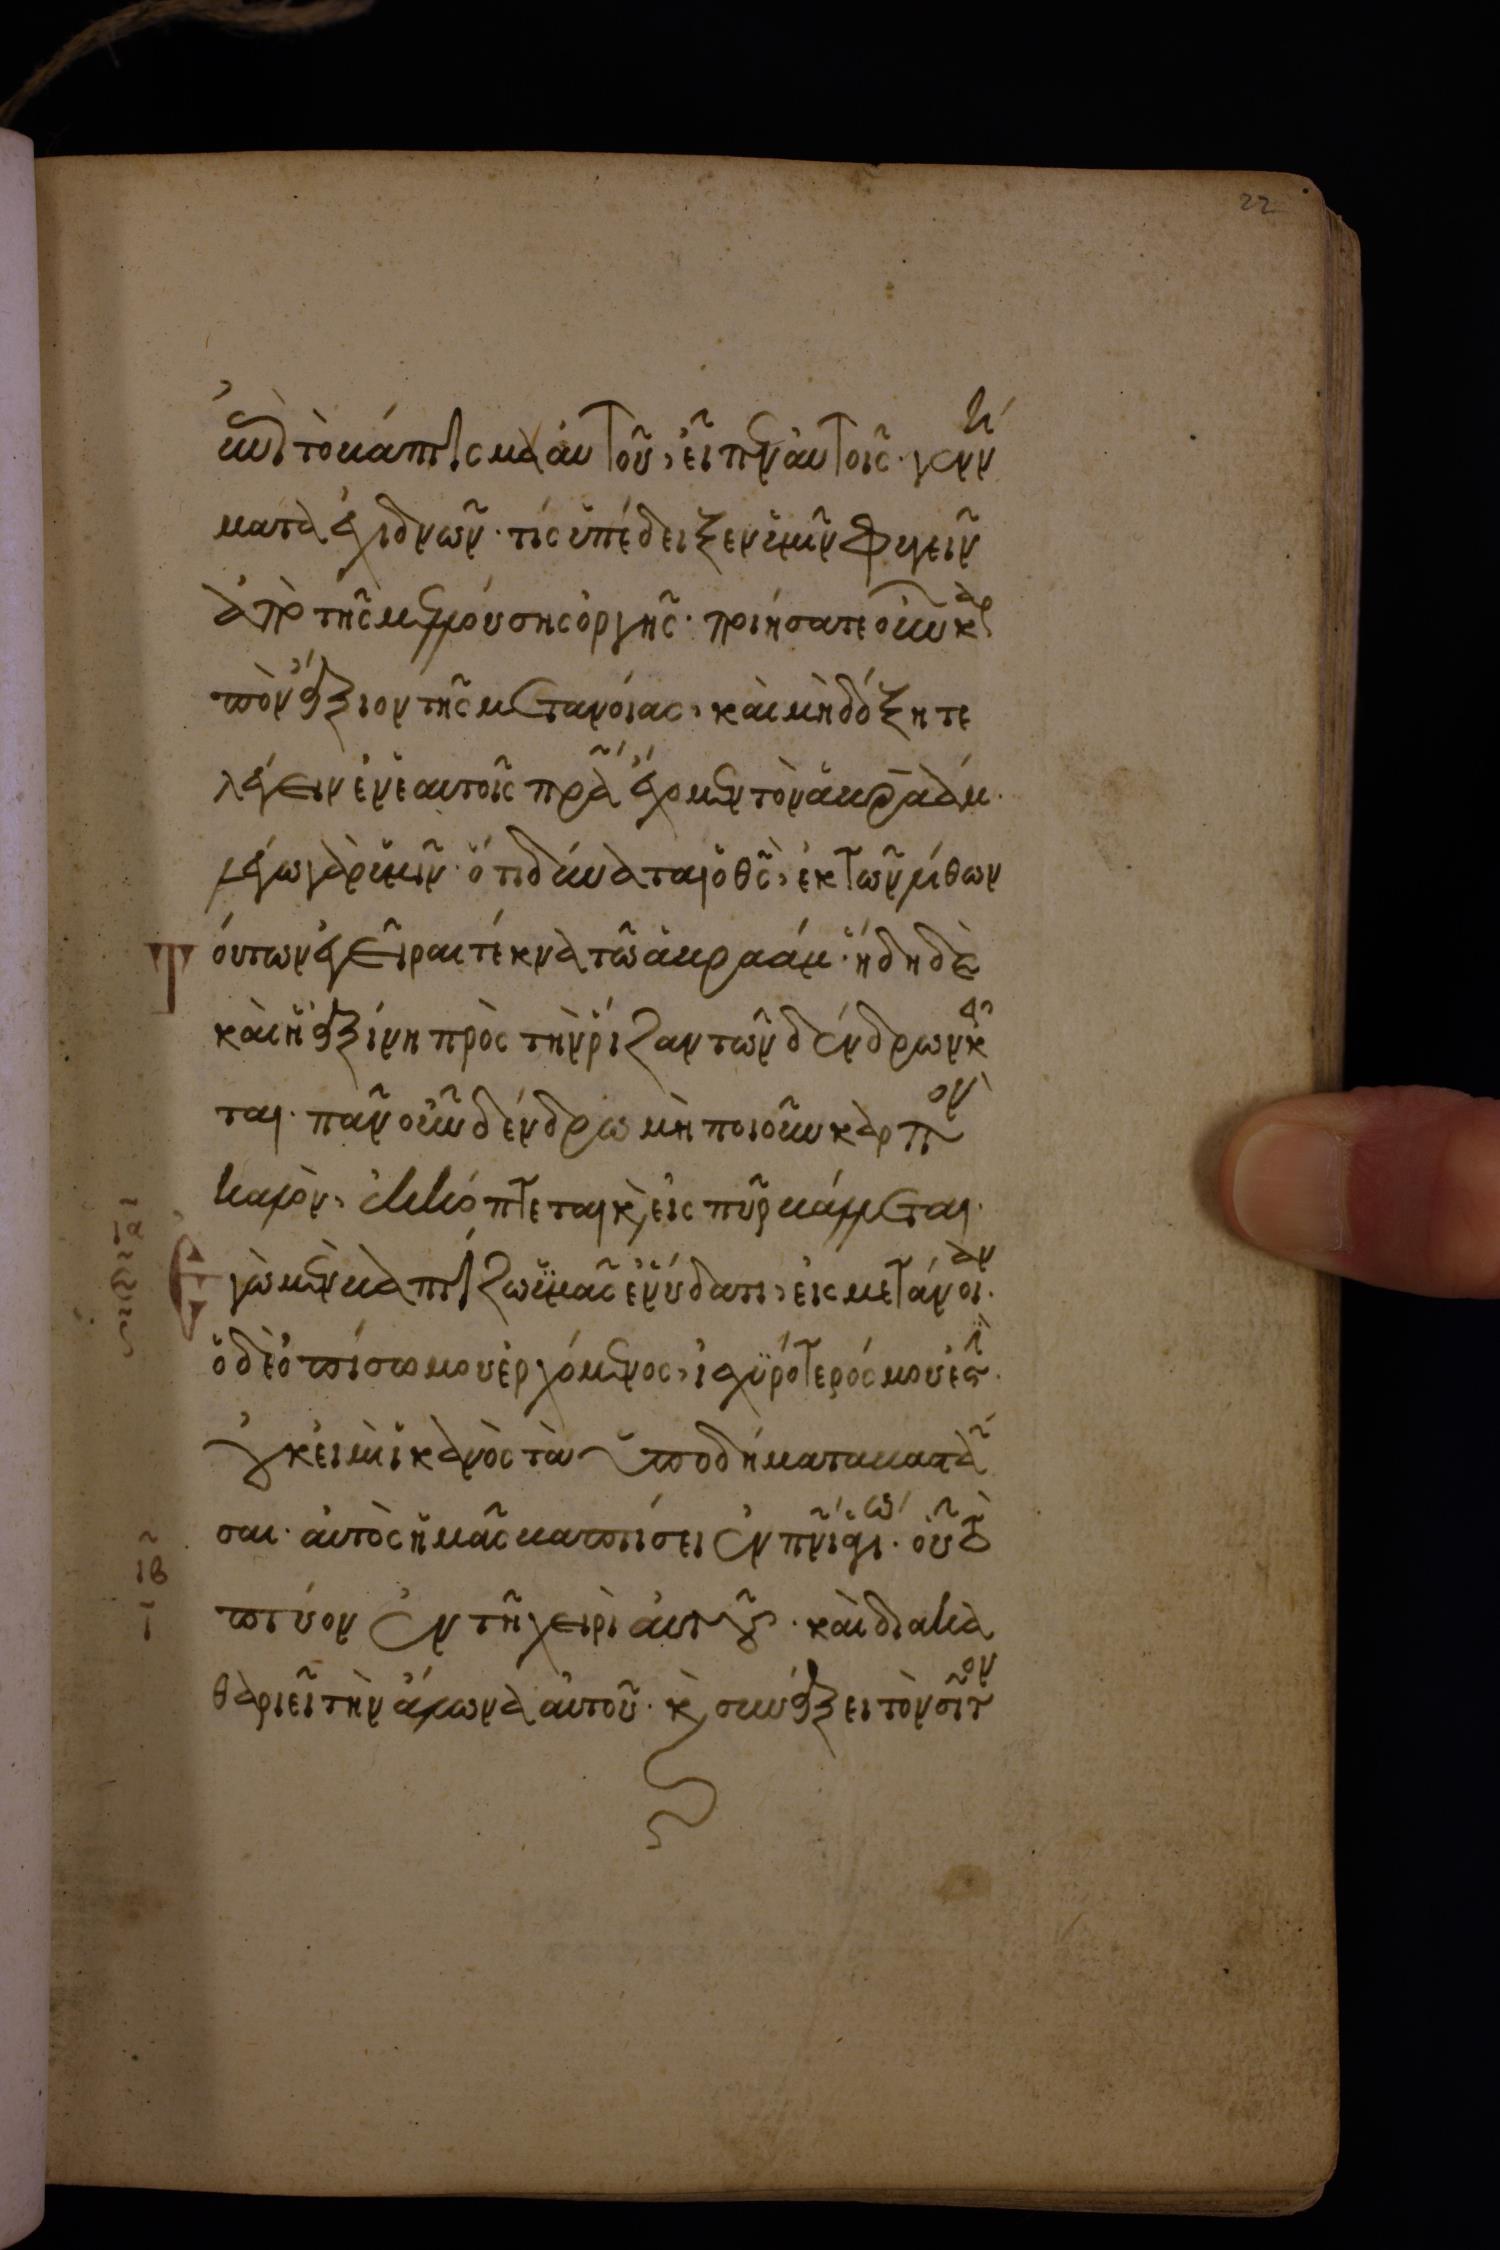 22
ἐπὶ τὸ βάπτισμα αὐτοῦ, εἶπεν αὐτοῖς· γεννή
ματα ἐχιδνῶν· τίς ὑπέδειξεν ὑμῖν φυγεῖν
ἀπὸ τῆς μελλούσης ὀργῆς· ποιήσατε οὖν καρ
πὸν ἄξιον τῆς μετανοίας, καὶ μὴ δόξητε
λέγειν ἐν ἑαυτοῖς πρα ἔχομεν τὸν ἀβραάμ·
λέγω γὰρ ὑμῖν· ὅτι δύναται ὁ θς, ἐκ τῶν λίθων
Τ
ούτων ἐγεῖραι τέκνα τῶ ἀβραάμ· ἤδη δὲ
καὶ ἡ ἀξίνη πρὸς τὴν ρίζαν τῶν δένδρων κεῖ
ται· πᾶν οὖν δένδρω μὴ ποιοῦν καρπὸν
καλὸν, ἐκκόπτεται κ εἰς πῦρ βάλλεται·
Ε
γὼ μὲν βαπτίζω ὑμᾶς ἐν ὕδατι, εἰς μετάνοιαν·
ὁ δὲ ὀπίσω μου ἐρχόμενος, ἰσχυρότερός μου ἐστὶ·
οὗ οὐκ εἰμὶ ἱκανὸς τὰ ὑποδήματα βαστᾶ
σαι· αὐτὸς ὑμᾶς βαπτίσει ἐν πνι ἁγίω· οὗ τὸ
ιβ
ι
πτύον ἐν τῆ χειρὶ αὐτοῦ· καὶ διακα
θαριεῖ τὴν ἅλωνα αὐτοῦ· κ συνάξει τὸν σῖτον